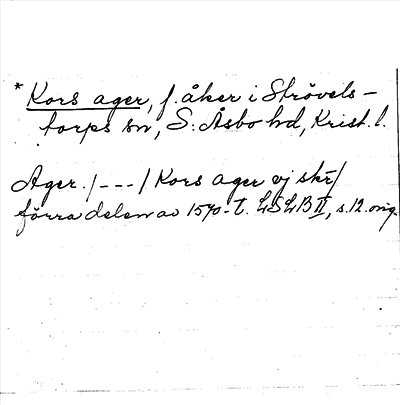 * Kors ager, f. åker i Strövels-
torps sn, S. Åsbo hd, Krist. l.
Ager. /---/ Kors ager vj skr/
förra delen av 1570-t. LSLB II, s. 12. orig.